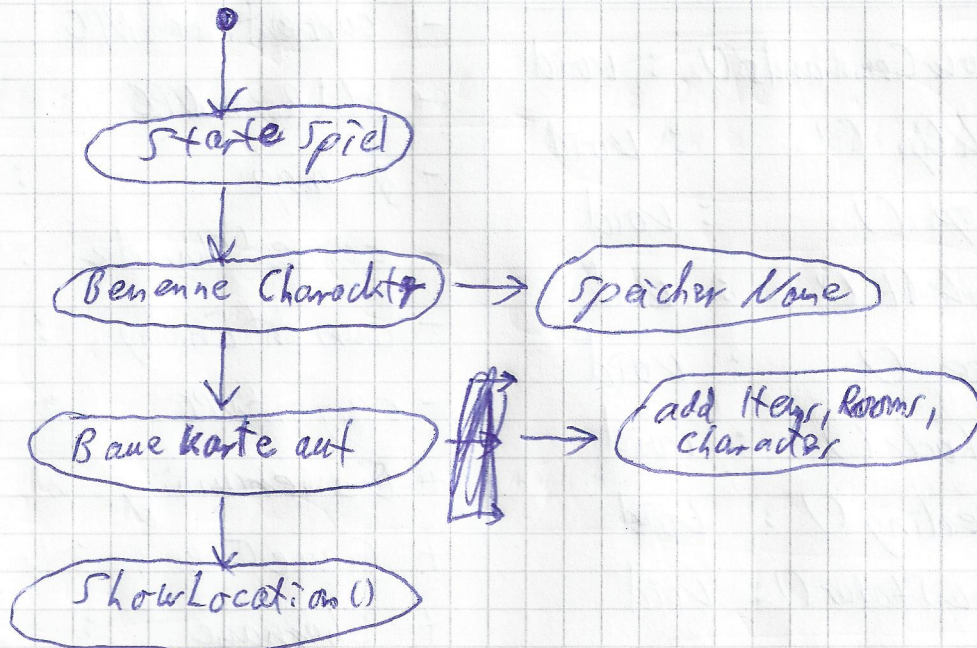 Starte Spiel
Benenne Charackter
Speicher Name
Baue Karte auf
add Items, Rooms,
character
ShowLocation()